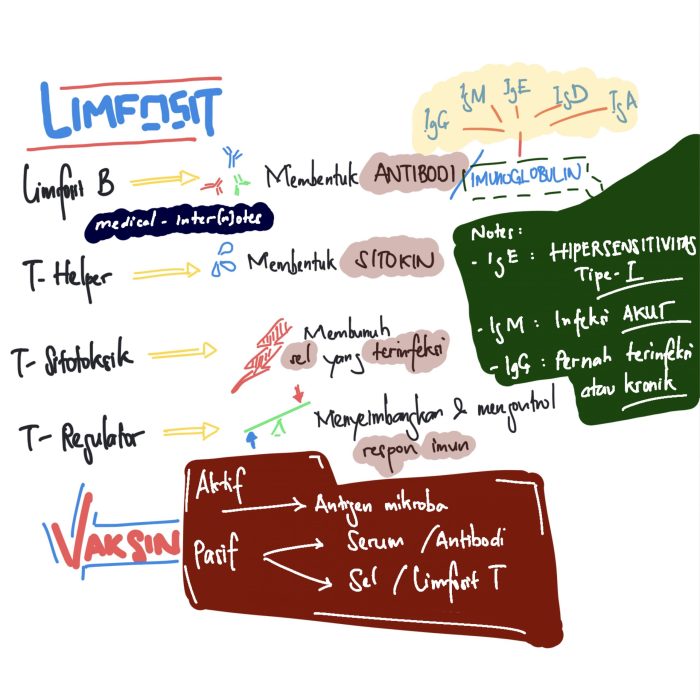 LIMFOSIT
IgG IgM IgE IgD IgA
Limfosit B Membentuk ANTIBODI / IMUNOGLOBULIN
medical-inter(n)otes
T-Helper Membentuk SITOKIN
T-Sitotoksik Membunuh
sel yang terinfeksi
T-Regulator Menyeimbangkan & mengontrol
respon imun
Notes:
- IgE : HIPERSENSITIVITAS
Tipe-I
- IgM : Infeksi AKUT
- IgG : Pernah terinfeksi
atau kronik
VAKSIN
Aktif
Antigen mikroba
Pasif
Serum / Antibodi
Sel / Limfosit T